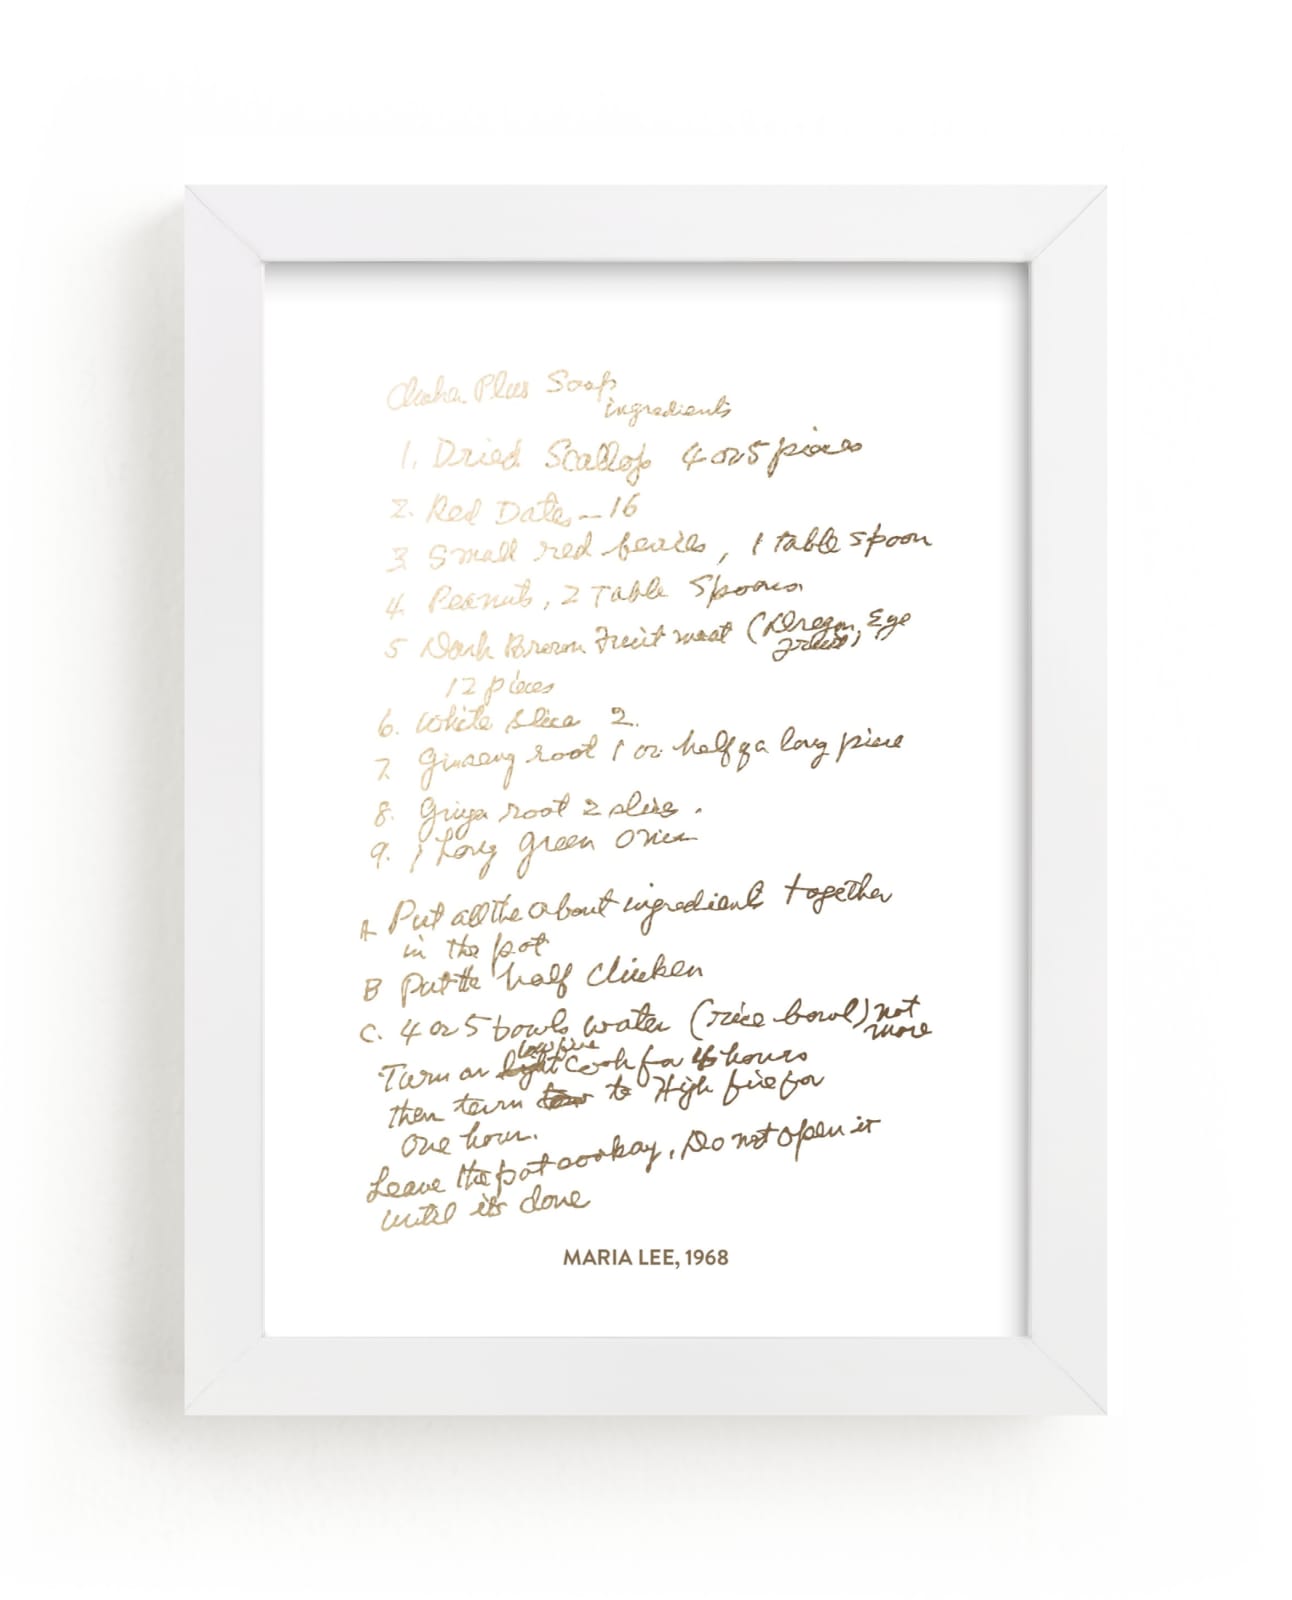 Chicken Plus Soup
ingredients
1. Dried Scallop 4 or 5 pieces
2. Red Dates - 16
3 Small red berries, 1 table spoon
4. Peanuts, 2 Table Spoons
5 Dark Brown Fruit meat (Dragon Eye
fruit),
12 pieces
6. White slice 2.
7 Ginseng root 1 or half of a long piece
8. Ginger root 2 slices.
9. 1 Long green onion
A Put all the about ingredients together
in the pot
B Put the half chicken
C. 4 or 5 bowls water (rice bowl) not
more
low fire
Turn on light cook for 4 hours
then turn to High fire for
one hour.
Leave the pot cookay, Do not open it
until its done
MARIA LEE, 1968